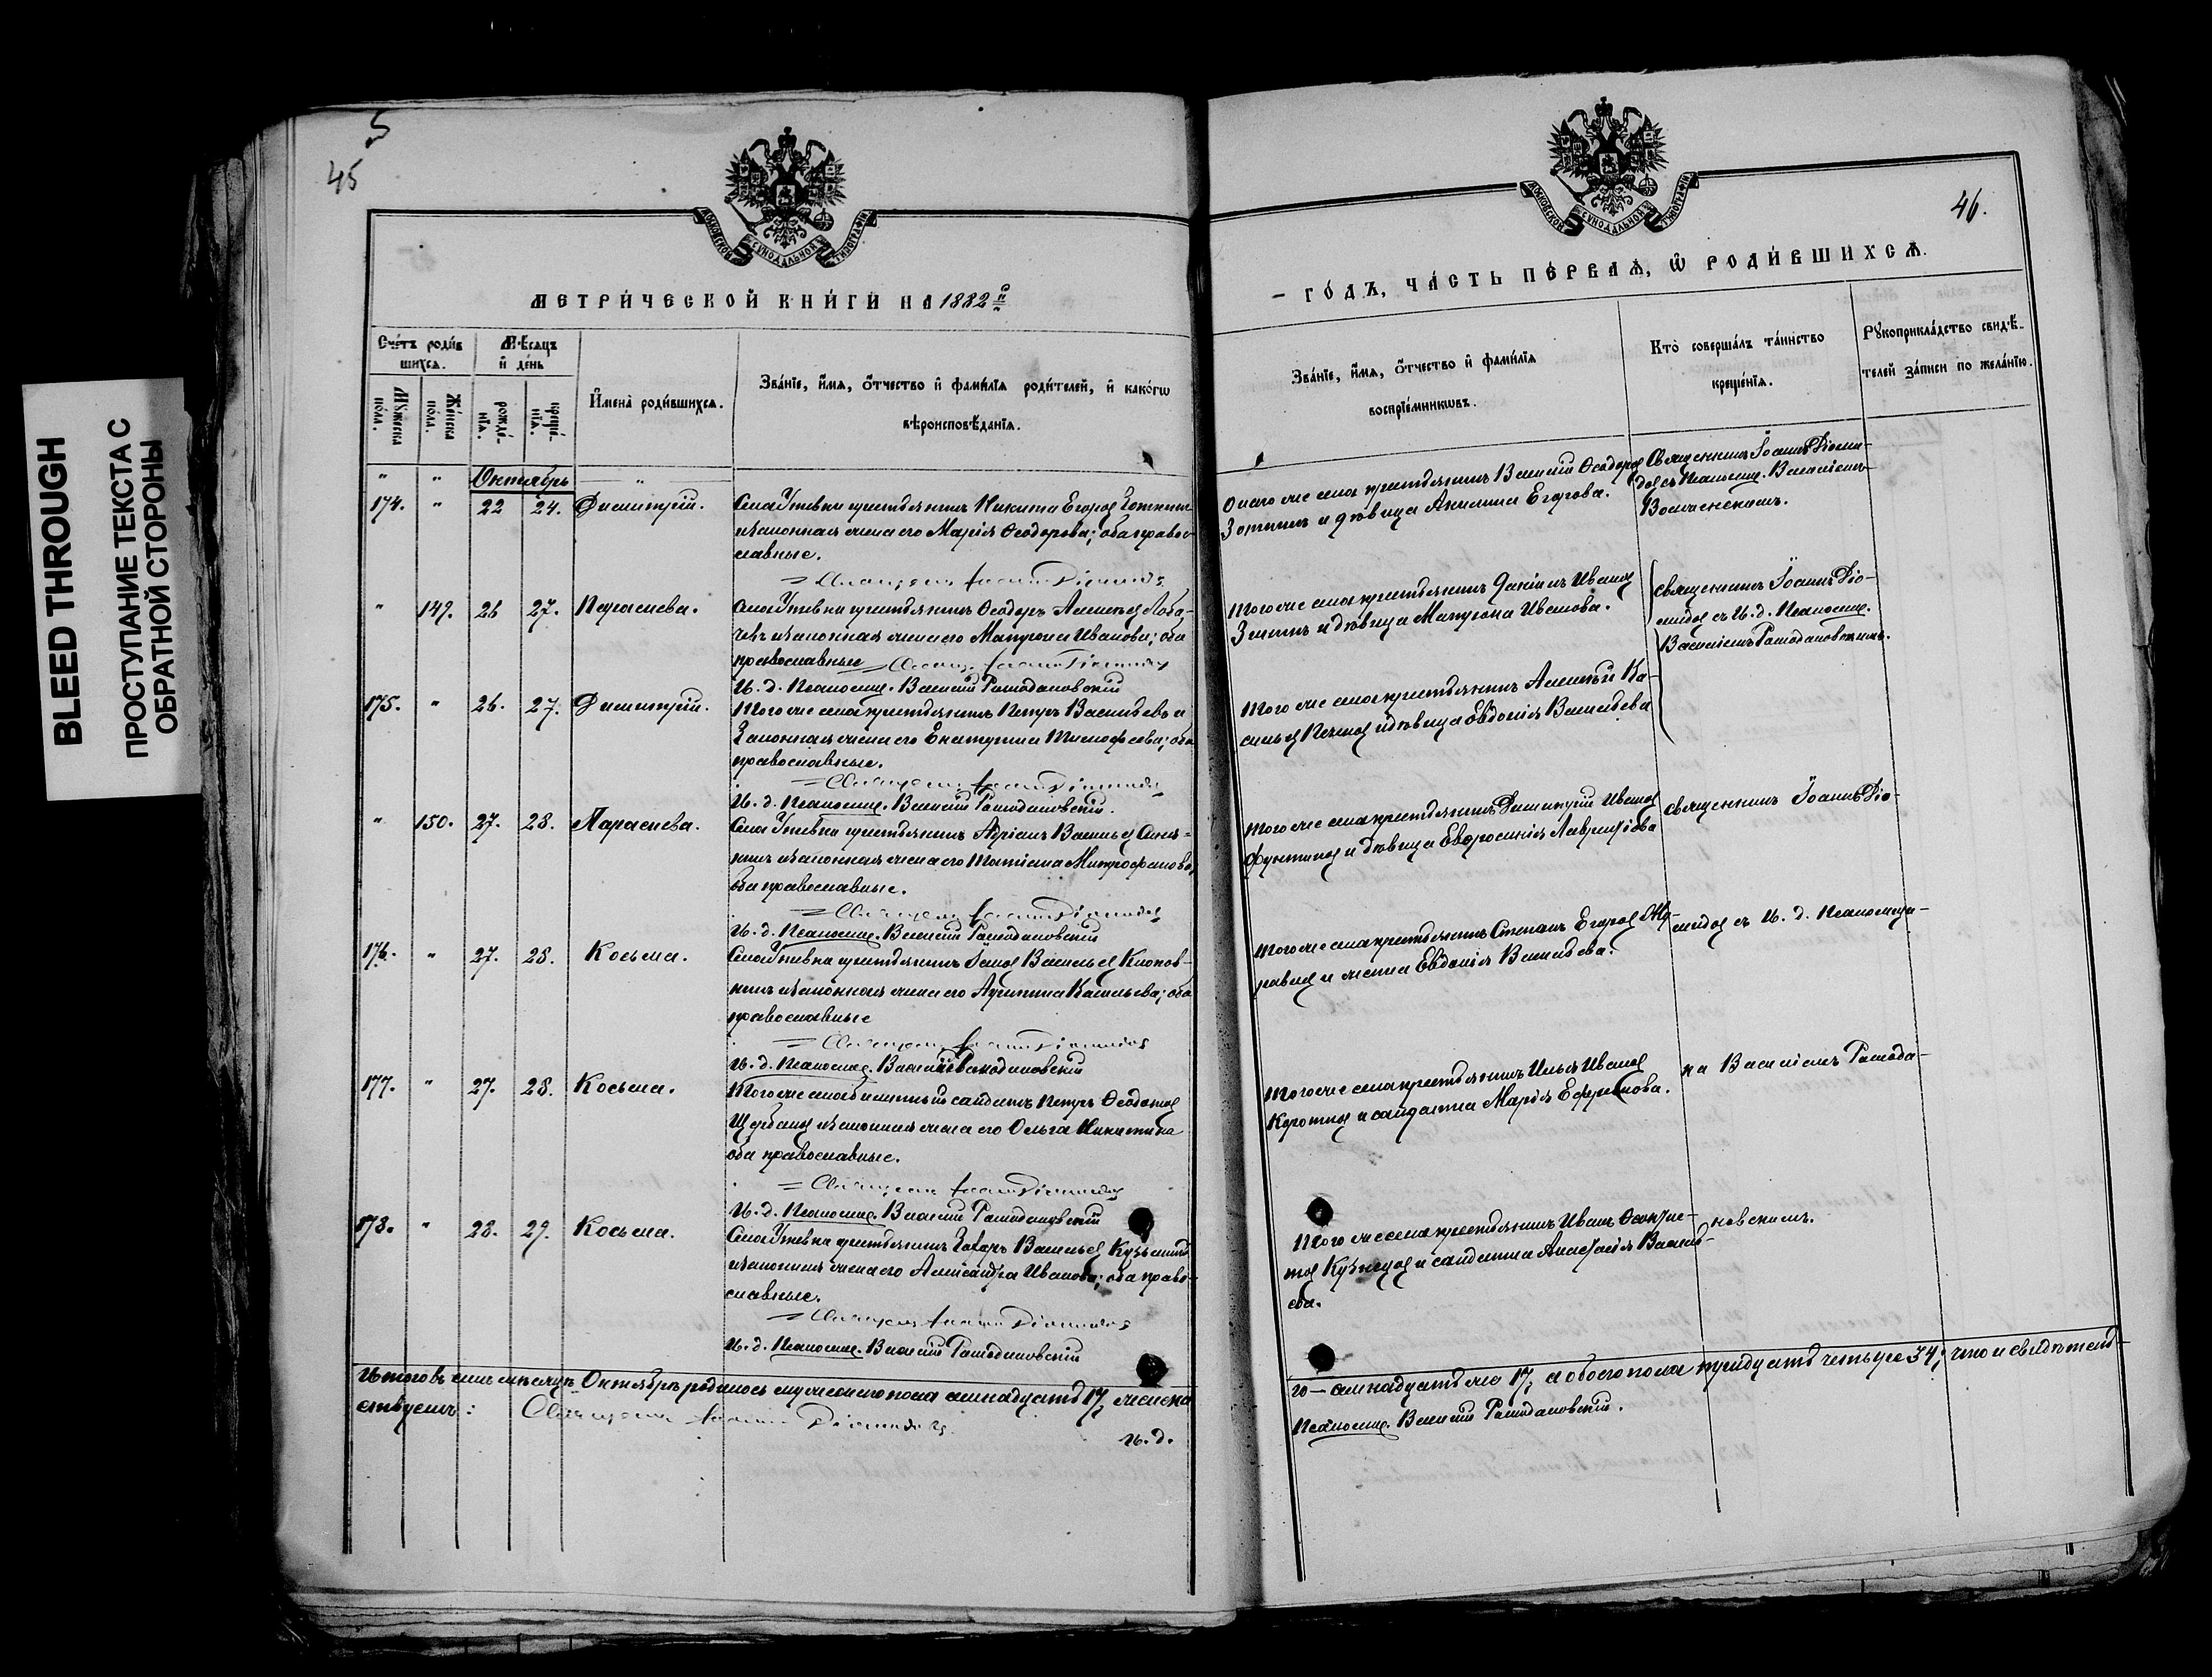 BLEED THROUGH
ПРОСТУПАНИЕ ТЕКСТА С
ОБРАТНОЙ СТОРОНЫ
5
45
МОСКОВСКОЙ СѴНОДАЛЬНОЙ ТИПОГРАФІИ
МЕТРИ́ЧЕСКОЙ КНИ́ГИ НА 1882й
Сче́тъ роди́в
шихся.
Мѣсяцъ
и҆ де́нь
Мꙋ́жеска
по́ла.
Же́нска
по́ла.
рожде́-
нїя.
креще́-
нїя.
И҆мена̀ роди́вшихся.
Зва́нїе, и҆́мя, ѻ҆́тчество и҆ фами́лїя роди́телей, и҆ како́гѡ
вѣроисповѣ́данїя.
" " Октябрь "
174. " 22 24. Димитрій.
Села Утевки крестьянинъ Никита Егоровъ Зоткинъ
и законная жена его Марія Ѳеодорова; оба право-
славные.
" 149. 26 27. Параскева.
Села Утевки крестьянинъ Ѳеодоръ
и законная жена его Матрона Иванова; оба
православные
И. д. Псаломщ. Василій Рамодановскій
175. " 26. 27. Димитрій.
Того же села крестьянинъ Петръ Васильевъ и
законная жена его Екатерина Тимофеева; оба
православные.
И. д. Псаломщ. Василій Рамодановскій.
" 150. 27. 28. Параскева.
Села Утевки крестьянинъ Адріанъ Васильевъ
и законная жена его Татіана Митрофанова,
оба православные.
И. д. Псаломщ. Василій Рамодановскій
176. " 27. 28. Косьма.
Села Утевки крестьянинъ Василь
и законная жена его Васильева; оба
православные
И. д. Псаломщ. Василій Рамодановскій
177. " 27. 28. Косьма.
Того же села билетный солдатъ Петръ Ѳедотовъ
Щербаковъ и законная жена его Ольга Никитина
оба православные.
И. д. Псаломщ. Василій Рамодановскій
178. " 28. 29. Косьма.
Села Утевки крестьянинъ Захаръ Васильевъ
и законная жена его Александра Иванова; оба право-
славные.
И. д. Псаломщ. Василій Рамодановскій
Итого въ семъ мѣсяцѣ Октябрѣ родилось мужескаго пола семнадцать 17, женска
ствуемъ:
И. д.
46.
МОСКОВСКОЙ СѴНОДАЛЬНОЙ ТИПОГРАФІИ
– ГО́ДЪ, ЧА́СТЬ ПЕ́РВАѦ, Ѡ҆ РОДИ́ВШИХСѦ.
Зва́нїе, и҆́мя, ѻ҆́тчество и҆ фами́лїя
воспрїе́мникѡвъ.
Кто̀ соверша́лъ та́инство
креще́нїя.
Рꙋкоприкла́дство свидѣ́-
телей за́писи по жела́нїю.
Онаго же села крестьянинъ Василій Ѳеодоровъ
Зоткинъ и дѣвица Акилина Егорова.
Священникъ Іоаннъ Діоми-
довъ съ Псаломщ. Василіемъ
Того же села крестьянинъ Даніилъ Ивановъ
и дѣвица Матрона Иванова.
священникъ Іоаннъ Діо-
мидовъ съ И. д. Псаломщ.
Василіемъ Рамодановскимъ.
Того же села крестьянинъ Алексѣй Ва-
сильевъ и дѣвица Евдокія Васильева
Того же села крестьянинъ Димитрій Ивановъ
и дѣвица Евфросинія Лаврентіева
священникъ Іоаннъ Діо-
Того же села крестьянинъ Степанъ Егоровъ Му-
равлевъ и жена Евдокія Васильева.
мидовъ съ И. д. Псаломщи-
Того же села крестьянинъ Илья Ивановъ
и солдатка Марія Ефремова.
ка Василіемъ Рамода-
Того же села крестьянинъ Иванъ Ѳеоктис-
товъ Кузнецовъ и солдатка Анастасія Василь-
ева.
новскимъ.
го — семнадцать же 17, а обоего пола тридцать четыре 34; что и свидѣтель-
Псаломщ. Василій Рамодановскій.